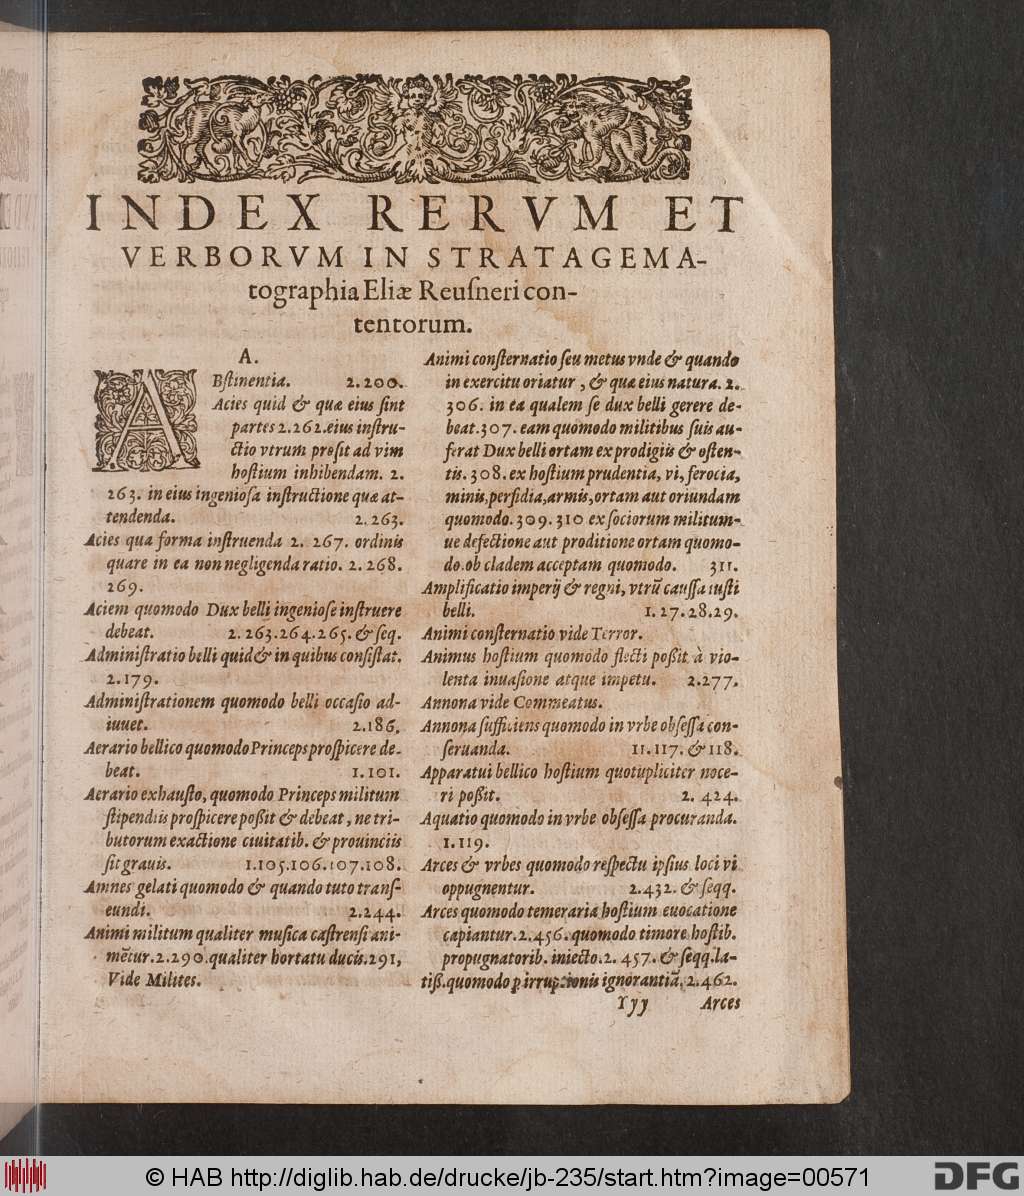 INDEX RERVM ET
VERBORVM IN STRATAGEMA-
tographia Eliæ Reuſneri con-
tentorum.
A.
ABſtinentia. 2.200.
Acies quid & quæ eius ſint
partes 2.262. eius inſtru-
ctio vtrum proſit ad vim
hoſtium inhibendam. 2.
263. in eius ingenioſa inſtructione quæ at-
tendenda. 2.263.
Acies qua forma inſtruenda 2. 267. ordinis
quare in ea non negligenda ratio. 2.268.
269.
Aciem quomodo Dux belli ingenioſe inſtruere
debeat. 2.263.264.265. & ſeq.
Adminiſtratio belli quid & in quibus conſiſtat.
2.179.
Adminiſtrationem quomodo belli occaſio ad-
iuuet. 2.186.
Aerario bellico quomodo Princeps proſpicere de-
beat. 1.101.
Aerario exhauſto, quomodo Princeps militum
ſtipendiis proſpicere poßit & debeat, ne tri-
butorum exactione ciuitatib. & prouinciis
ſit grauis. 1.105.106.107.108.
Amnes gelati quomodo & quando tuto tranſ-
eundi. 2.244.
Animi militum qualiter muſica caſtrenſi ani-
mẽtur. 2.290. qualiter hortatu ducis. 291,
Vide Milites.
Animi conſternatio ſeu metus vnde & quando
in exercitu oriatur, & quæ eius natura. 2.
306. in ea qualem ſe dux belli gerere de-
beat. 307. eam quomodo militibus ſuis au-
ferat Dux belli ortam ex prodigiis & oſten-
tis. 308. ex hoſtium prudentia, vi, ferocia,
minis, perfidia, armis, ortam aut oriundam
quomodo. 309. 310 ex ſociorum militum-
ue defectione aut proditione ortam quomo-
do. ob cladem acceptam quomodo. 311.
Amplificatio imperij & regni, vtrũ cauſſa iuſti
belli. 1.27.28.29.
Animi conſternatio vide Terror.
Animus hoſtium quomodo flecti poßit à vio-
lenta inuaſione atque impetu. 2.277.
Annona vide Commeatus.
Annona ſufficiens quomodo in vrbe obſeſſa con-
ſeruanda. 11.117. & 118.
Apparatui bellico hoſtium quotupliciter noce-
ri poßit. 2. 424.
Aquatio quomodo in vrbe obſeſſa procuranda.
1.119.
Arces & vrbes quomodo reſpectu ipſius loci vi
oppugnentur. 2.432. & ſeqq.
Arces quomodo temeraria hoſtium euocatione
capiantur. 2.456. quomodo timore hoſtib.
propugnatorib. iniecto. 2. 457. & ſeqq. la-
tiß. quomodo ꝑ irruptionis ignorantiã, 2.462.
Yyy Arces
© HAB http://diglib.hab.de/drucke/jb-235/start.htm?image=00571
DFG